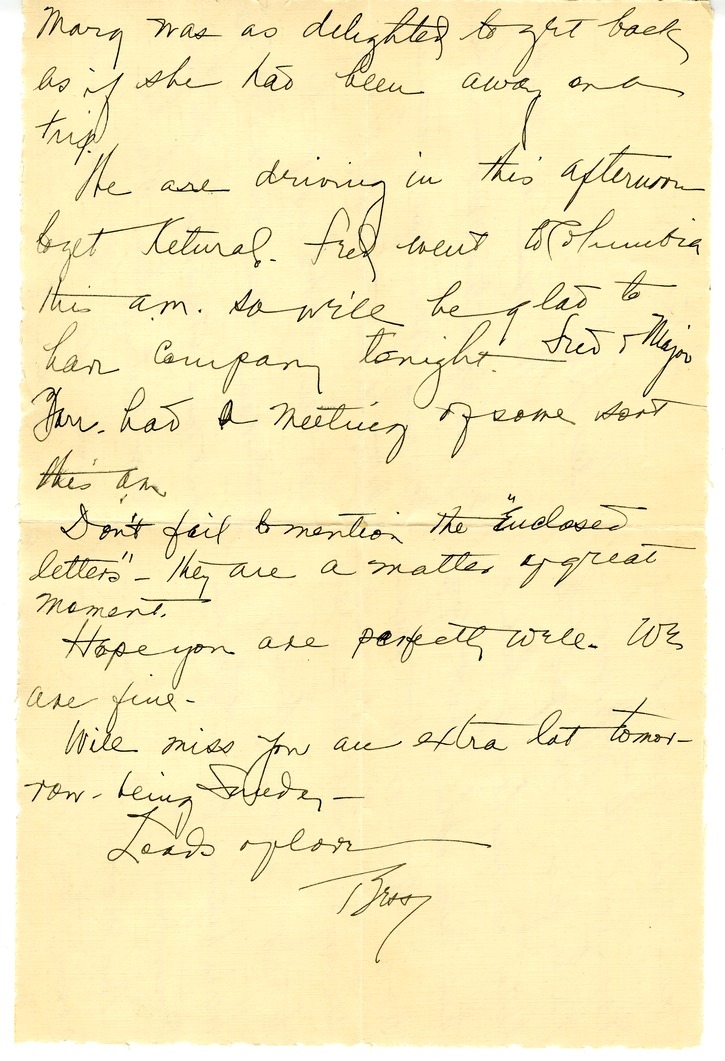 Marg was as delighted to get back
as if she had been away on a
trip.
We are driving in this afternoon
to get Natural. Fred went to Columbia
this a.m. so will be glad to
have company tonight. Fred & Major
had a meeting of some sort
this a.m.
Don't fail to mention the "Enclosed
letters" - they are a matter of great
moment.
Hope you are perfectly well. We
are fine -
Will miss you an extra lot tomor-
row - being Sunday -
Loads of love
Bess